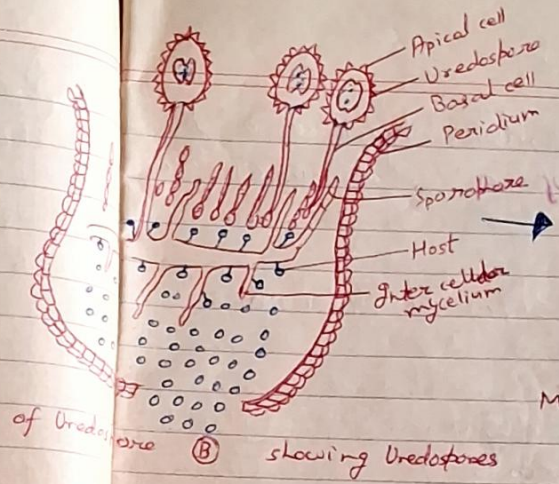 Apical cell
Uredospore
Basal cell
Peridium
Sporophore
Host
Inter cellular
mycelium
M
of Uredospore
B showing Uredospores